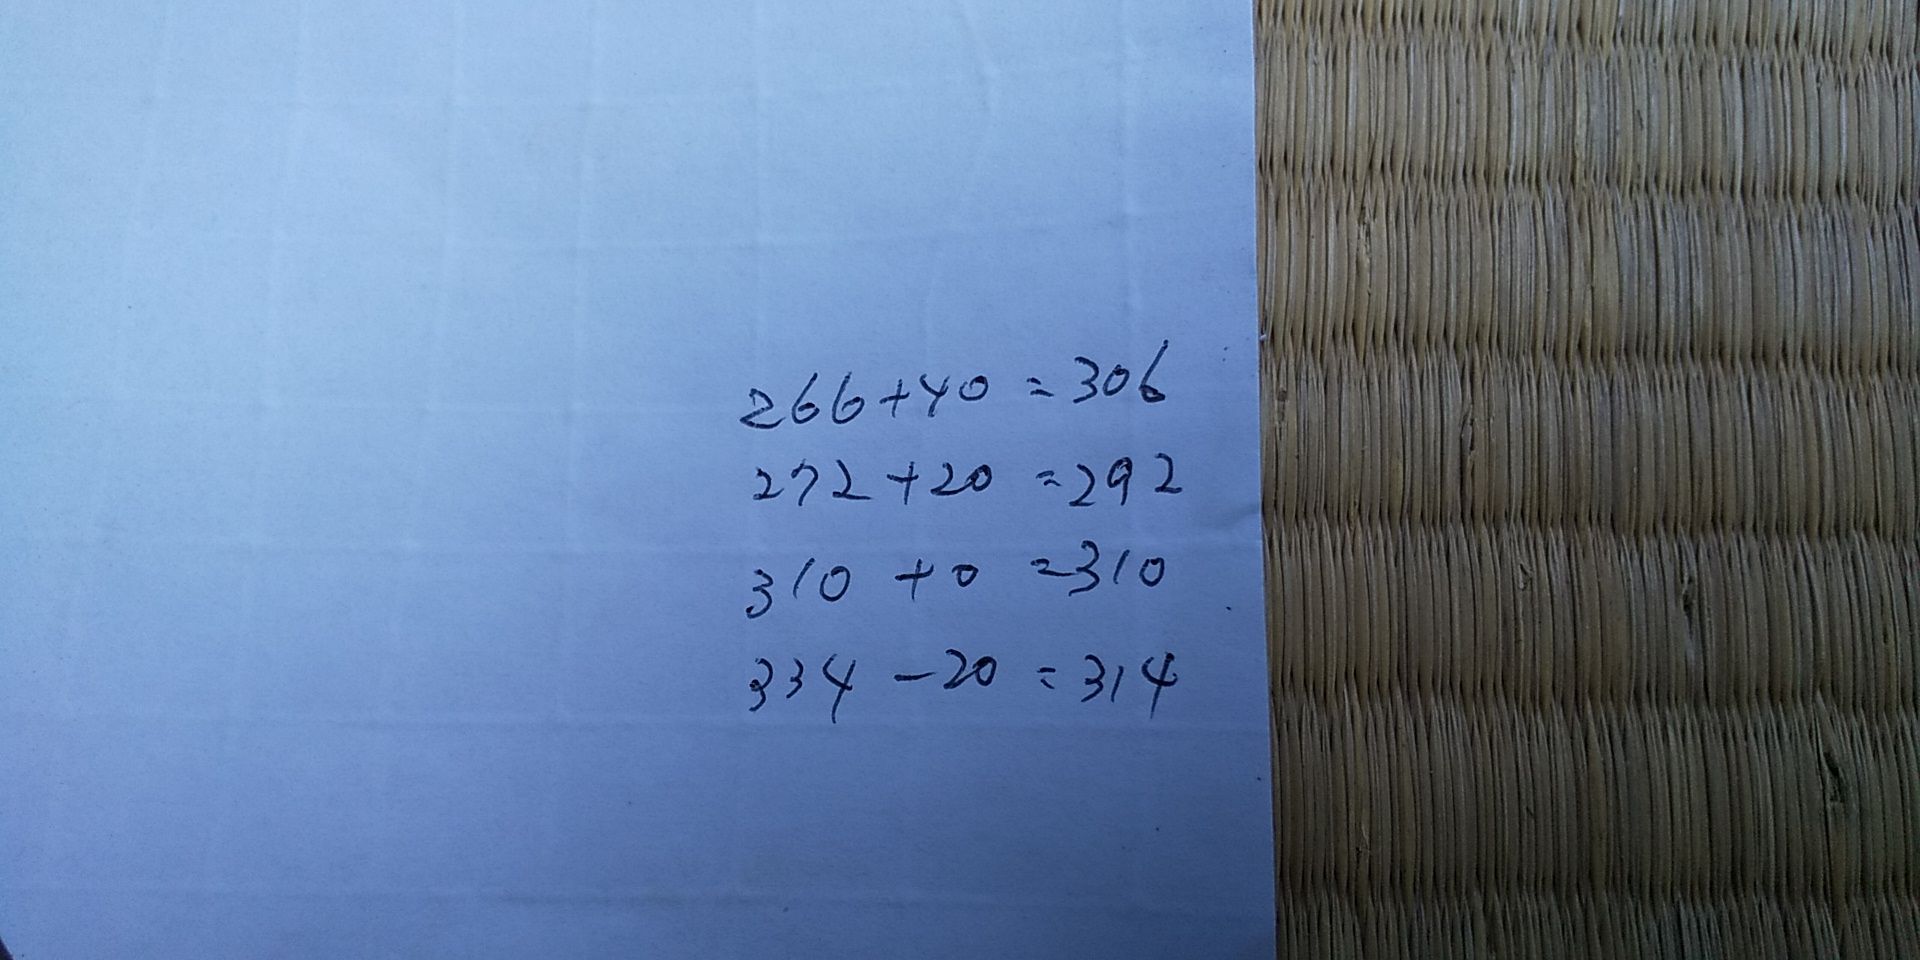 266+40=306
272+20=292
310+0=310
334-20=314